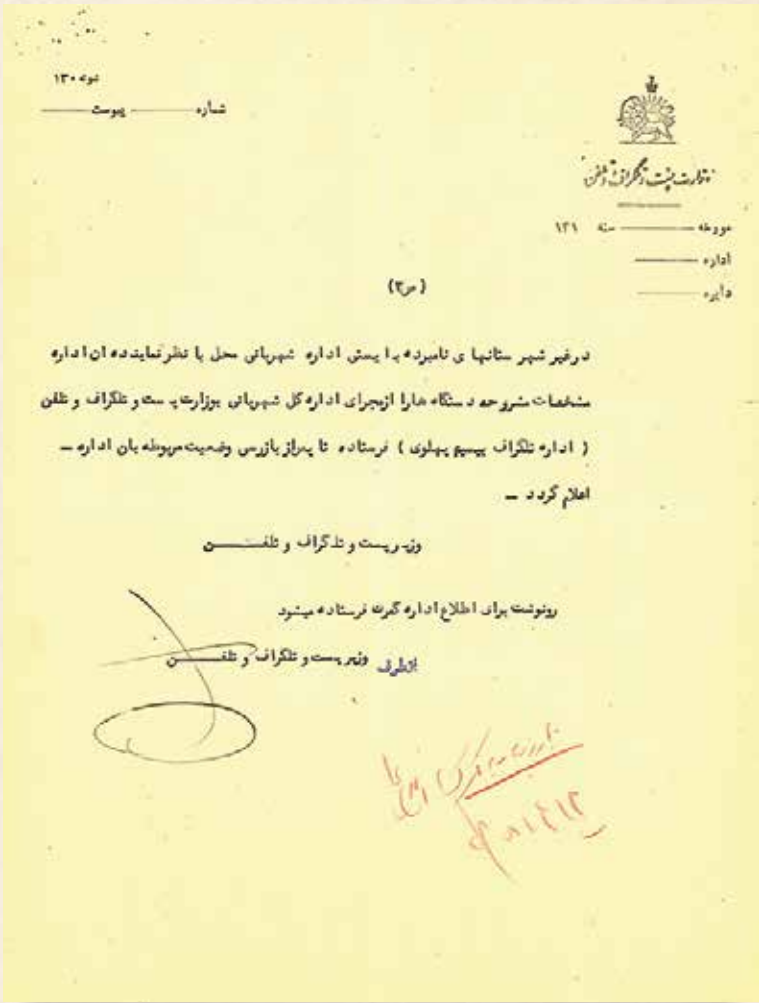 نمونه ۱۳۰
شماره پیوست
وزارت پست و تلگراف و تلفن
مورخه سنه ۱۳۱
اداره
دایره
(ص۲)
درغیر شهر ستانها ی نامبرده با یستی اداره شهربانی محل با نظر نماینده ان اداره
مشخصات مشروحه دستگاه هارا ازمجرای اداره کل شهربانی بوزارت پست و تلگراف و تلفن
( اداره تلگراف بیسیم پهلوی ) فرستاده تا پس از بازرسی وضعیت مربوطه بان اداره ــ
اعلام گردد ــ
وزیر پست و تلگراف و تلفن
رونوشت برای اطلاع اداره گمرک فرستاده میشود
ازطرف وزیر پست و تلگراف و تلفن